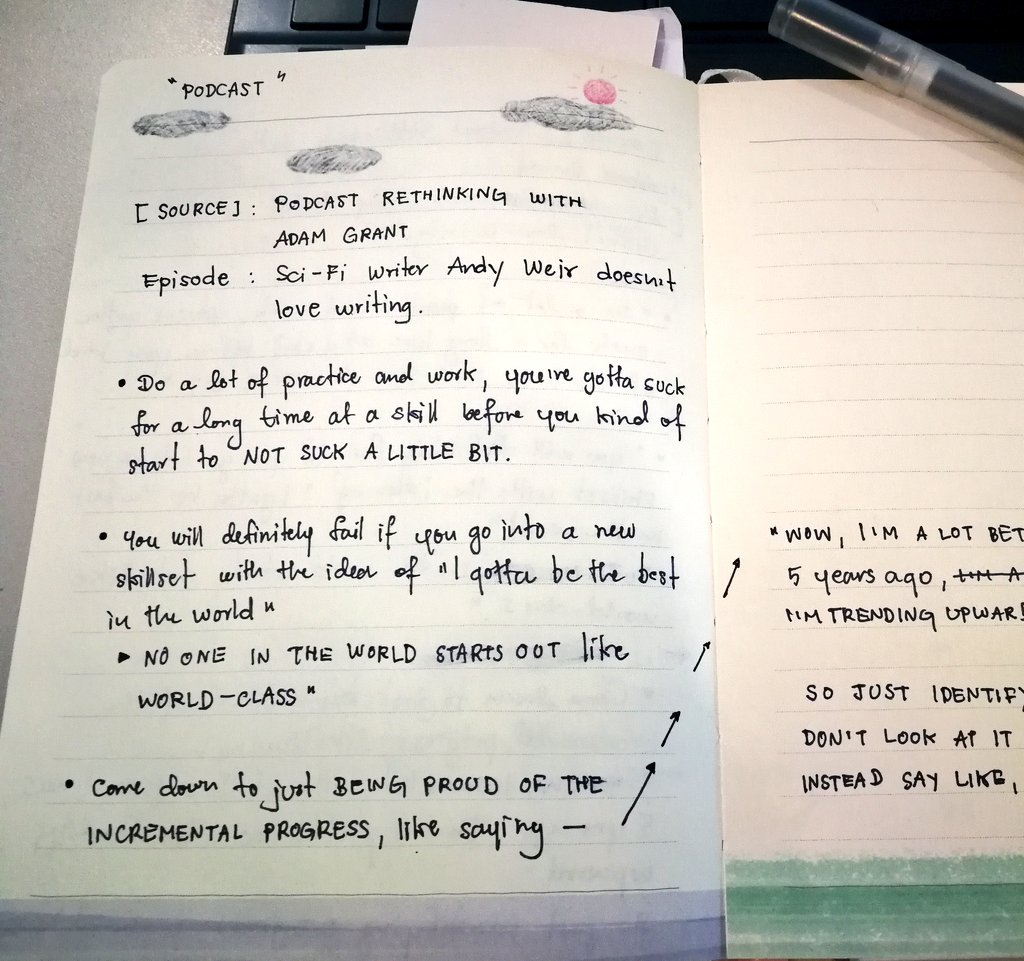 "PODCAST"
[SOURCE] : PODCAST RETHINKING WITH
ADAM GRANT
Episode : Sci-Fi writer Andy Weir doesn't
love writing.
• Do a lot of practice and work, you've gotta suck
for a long time at a skill before you kind of
start to NOT SUCK A LITTLE BIT.
• You will definitely fail if you go into a new
skillset with the idea of "I gotta be the best
in the world"
▸ NO ONE IN THE WORLD STARTS OUT like
WORLD-CLASS"
• Come down to just BEING PROUD OF THE
INCREMENTAL PROGRESS, like saying —
"WOW, I'M A LOT BET
5 years ago, I'M A
I'M TRENDING UPWARD
SO JUST IDENTIFY
DON'T LOOK AT IT
INSTEAD SAY LIKE,